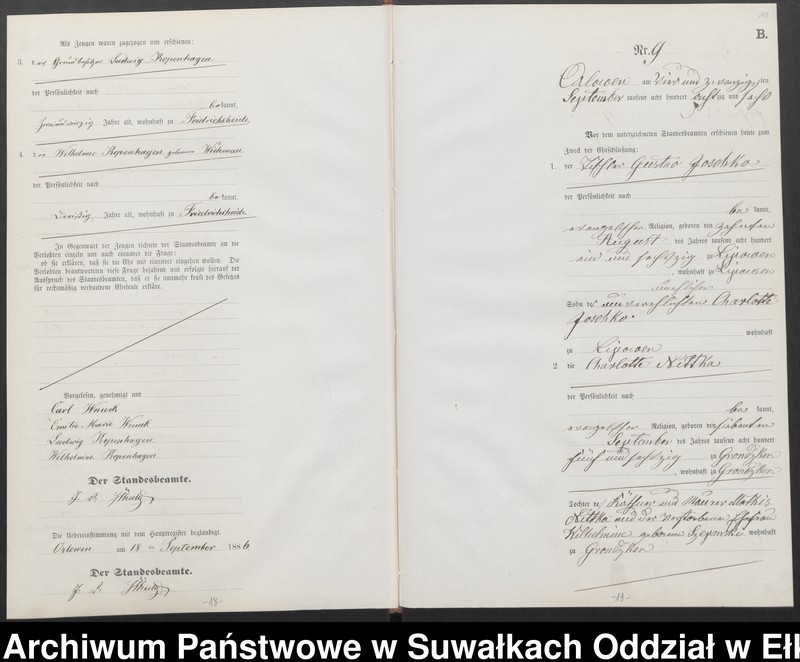 Als Zeugen waren zugezogen und erschienen:
3. der Grundbesitzer Ludwig Kopenhagen
der Persönlichkeit nach
be kannt,
zweiunddreißig Jahre alt, wohnhaft zu Friedrichsheide
4. die Wilhelmine Kopenhagen geborene
der Persönlichkeit nach
be kannt,
Dreißig Jahre alt, wohnhaft zu Friedrichsheide
In Gegenwart der Zeugen richtete der Standesbeamte an die
Verlobten einzeln und nach einander die Frage:
ob sie erklären, daß sie die Ehe mit einander eingehen wollen. Die
Verlobten beantworteten diese Frage bejahend und erfolgte hierauf der
Ausspruch des Standesbeamten, daß er sie nunmehr kraft des Gesetzes
für rechtmäßig verbundene Eheleute erkläre.
Vorgelesen, genehmigt und
Carl Wnuck
Emilie Marie Wnuck
Ludwig Kopenhagen
Wilhelmine Kopenhagen
Der Standesbeamte.
Die Uebereinstimmung mit dem Hauptregister beglaubigt.
Orlowen am 18 ten September 1886
Der Standesbeamte.
-18-
B.
Nr. 9
Orlowen am Vier und zwanzigsten
September tausend acht hundert achtzig und sechs
Vor dem unterzeichneten Standesbeamten erschienen heute zum
Zweck der Eheschließung:
1. der Tischler Gustav Joschko
der Persönlichkeit nach
be kannt,
evangelischer Religion, geboren den zehnten
August des Jahres tausend acht hundert
ein und sechszig zu Lipowen
, wohnhaft zu Lipowen
Sohn der unverehelichten Charlotte
Joschko
wohnhaft
zu Lipowen
2. die Charlotte Nittka
der Persönlichkeit nach
be kannt,
evangelischer Religion, geboren den siebenten
September des Jahres tausend acht hundert
fünf und sechszig zu Grondzken
, wohnhaft zu Grondzken
Tochter des Käthner und Maurer Mathis
Nittka und der verstorbenen Ehefrau
Wilhelmine geborene wohnhaft
zu Grondzken
-19-
Archiwum Państwowe w Suwałkach Oddział w Ełk